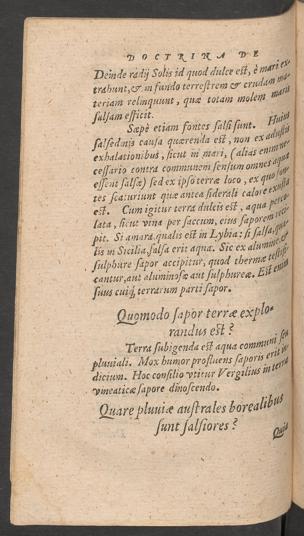 DOCTRINA DE
Deinde radij Solis id quod dulce est, è mari ex-
trahunt, & in fundo terrestrem & crudam ma-
teriam relinquunt, quæ totam molem maris
salsam efficit.
Sæpè etiam fontes salsi sunt. Huius
salsedinis causa quærenda est, non ex adustis
exhalationibus, sicut in mari, (alias enim ne-
cessario contra communem sensum omnes aquæ
essent salsæ) sed ex ipso terræ loco, ex quo fon-
tes scaturiunt quæ antea siderali calore exusta
est. Cum igitur terra dulcis est, aqua perco-
lata, sicut vina per saccum, eius saporem reci-
pit. Si amara, qualis est in Lybia: si salsa, qua-
lis in Sicilia, salsa erit aqua. Sic ex alumine, &
sulphure sapor accipitur, quod thermæ testifi-
cantur, aut aluminosæ aut sulphureæ. Est enim
suus cuiq; terrarum parti sapor.
Quomodo sapor terræ explo-
randus est?
Terra subigenda est aqua communi seu
pluviali. Mox humor profluens saporis erit in-
dicium. Hoc consilio vtitur Vergilius in terra
vineaticæ sapore dinoscendo.
Quare pluviæ australes borealibus
sunt salsiores?
Quia